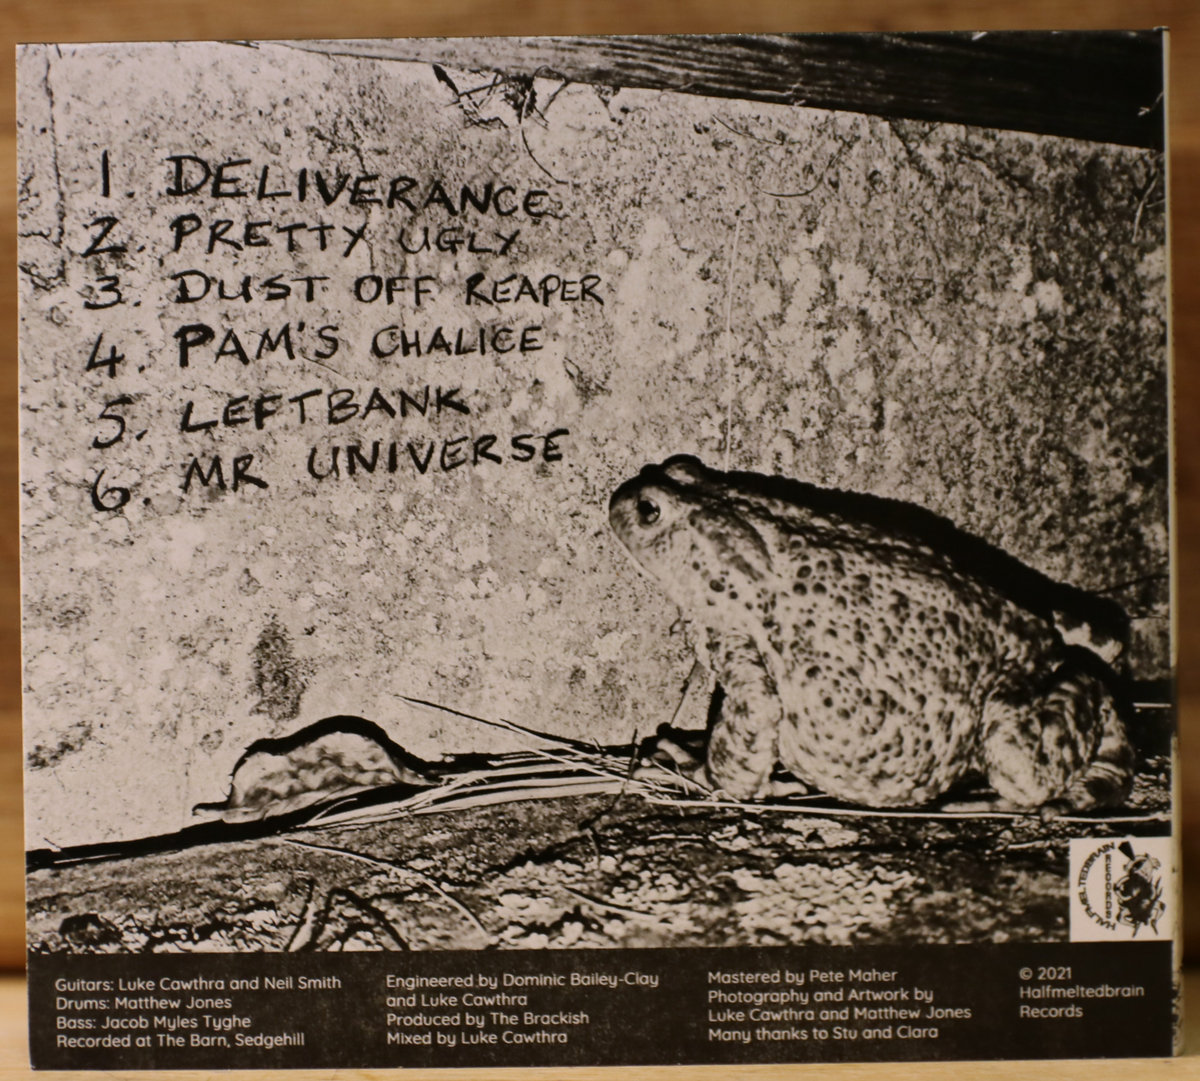 1. DELIVERANCE
2. PRETTY UGLY
3. DUST OFF REAPER
4. PAM'S CHALICE
5. LEFTBANK
6. MR UNIVERSE
HALFMELTEDBRAIN
RECORDS
Guitars: Luke Cawthra and Neil Smith
Drums: Matthew Jones
Bass: Jacob Myles Tyghe
Recorded at The Barn, Sedgehill
Engineered by Dominic Bailey-Clay
and Luke Cawthra
Produced by The Brackish
Mixed by Luke Cawthra
Mastered by Pete Maher
Photography and Artwork by
Luke Cawthra and Matthew Jones
Many thanks to Stu and Clara
© 2021
Halfmeltedbrain
Records